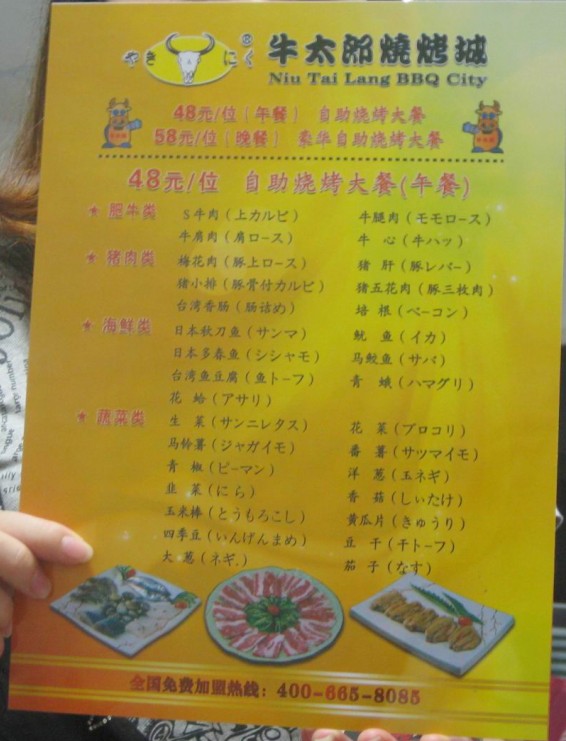 やき ® にく 牛太郎燒烤城
Niu Tai Lang BBQ City
48元/位(午餐) 自助烧烤大餐
58元/位(晚餐) 豪华自助烧烤大餐
48元/位 自助烧烤大餐(午餐)
★ 肥牛类 S牛肉(上カルビ) 牛腿肉(モモロース)
牛肩肉(肩ロース) 牛 心(牛ハツ)
★ 猪肉类 梅花肉(豚上ロース) 猪 肝(豚レバー)
猪小排(豚骨付カルビ) 猪五花肉(豚三枚肉)
台湾香肠(腸詰め) 培 根(ベーコン)
★ 海鲜类 日本秋刀鱼(サンマ) 鱿 鱼(イカ)
日本多春鱼(シシャモ) 马鲛鱼(サバ)
台湾鱼豆腐(魚トーフ) 青 蛾(ハマグリ)
花 蛤(アサリ)
★ 蔬菜类 生 菜(サンニレタス) 花 菜(ブロコリ)
马铃薯(ジャガイモ) 番 薯(サツマイモ)
青 椒(ピーマン) 洋 葱(玉ネギ)
韭 菜(にら) 香 菇(しぃたけ)
玉米棒(とうもろこし) 黄瓜片(きゅうり)
四季豆(いんげんまめ) 豆 干(干トーフ)
大 葱(ネギ.) 茄 子(なす)
全国免费加盟热线: 400-665-8085